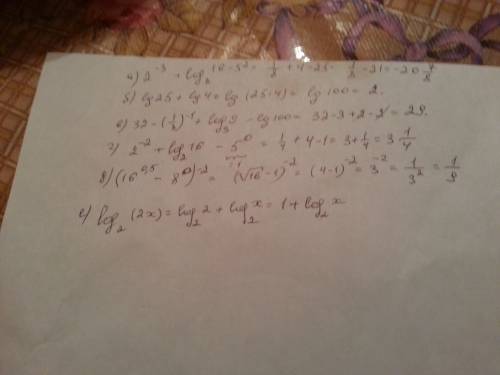 а) 2^-3 + log_2 16 - 5^2 = 1/8 + 4 - 25 = 1/8 - 21 = -20 7/8
б) lg 25 + lg 4 = lg (25·4) = lg 100 = 2.
в) 32 - (1/3)^-1 + log_3 9 - lg 100 = 32 - 3 + 2 - 2 = 29.
г) 2^-2 + log_2 16 - 5^0 = 1/4 + 4 - 1 = 3 + 1/4 = 3 1/4
д) (16^0,5 - 8^0)^-2 = (√16 - 1)^-2 = (4-1)^-2 = 3^-2 = 1/3^2 = 1/9
е) log_2 (2x) = log_2 2 + log_2 x = 1 + log_2 x